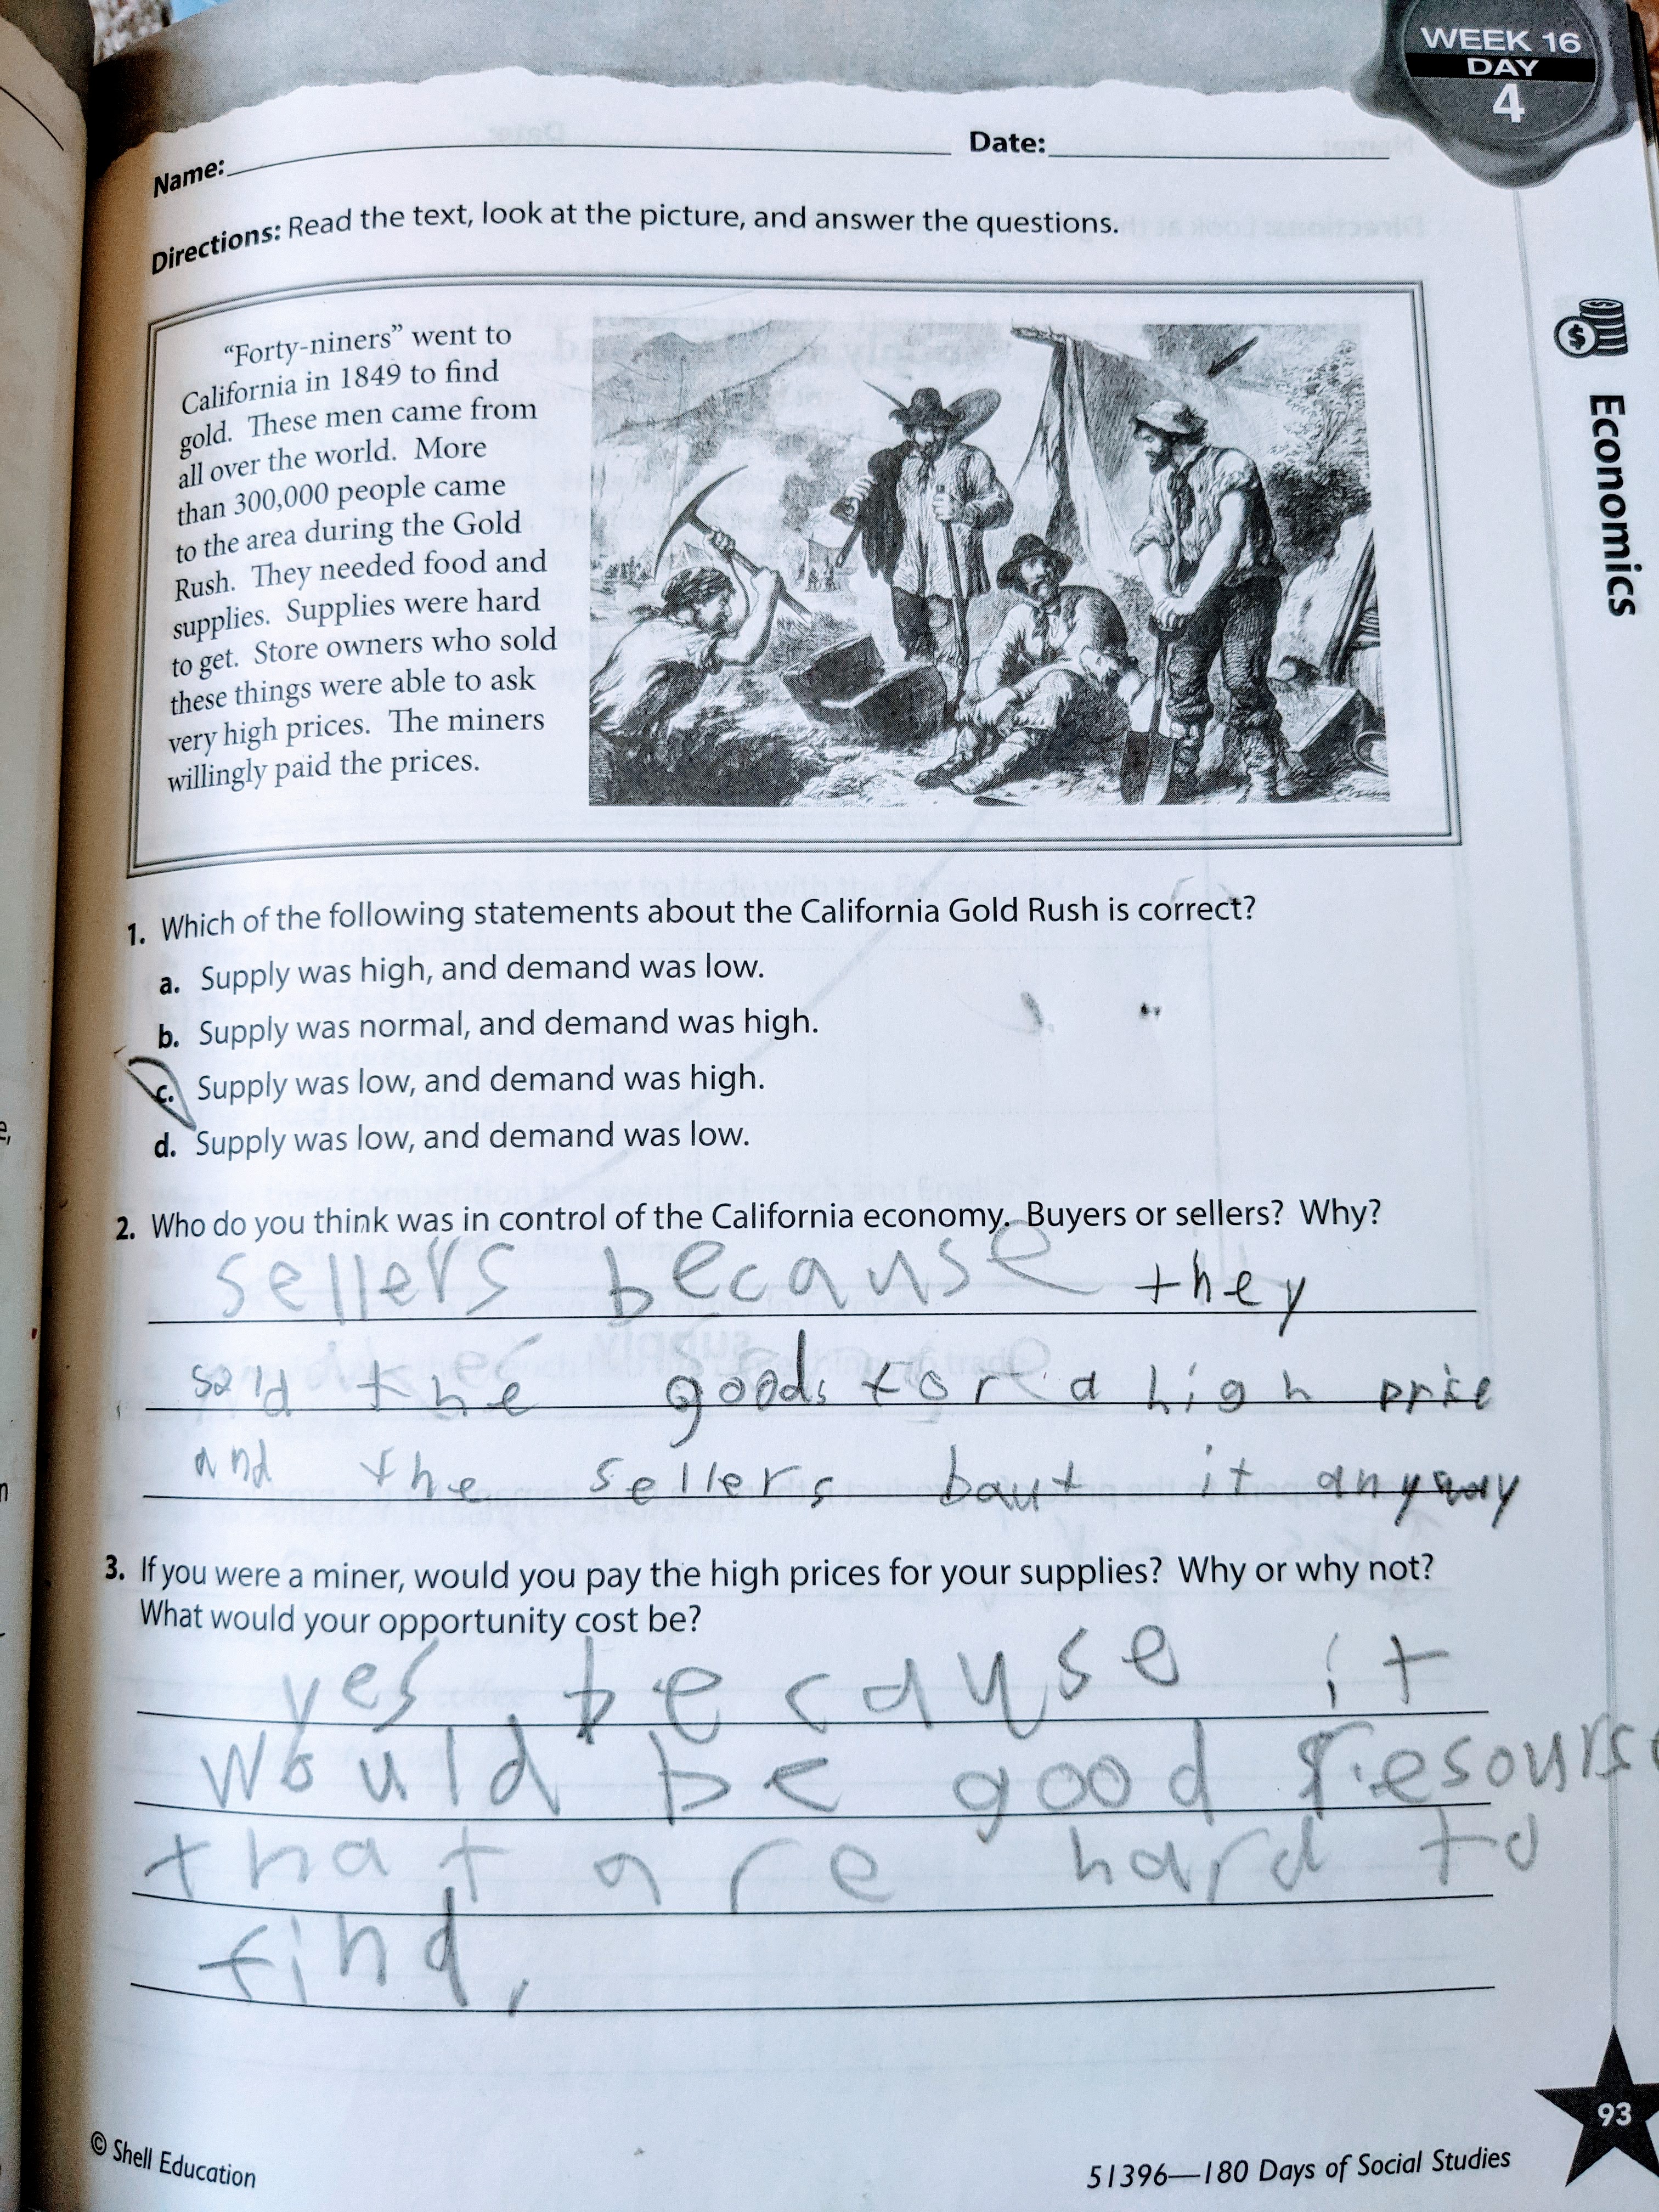 WEEK 16
DAY
4
Name: Date:
Directions: Read the text, look at the picture, and answer the questions.
Economics
“Forty-niners” went to
California in 1849 to find
gold. These men came from
all over the world. More
than 300,000 people came
to the area during the Gold
Rush. They needed food and
supplies. Supplies were hard
to get. Store owners who sold
these things were able to ask
very high prices. The miners
willingly paid the prices.
1. Which of the following statements about the California Gold Rush is correct?
a. Supply was high, and demand was low.
b. Supply was normal, and demand was high.
c. Supply was low, and demand was high.
d. Supply was low, and demand was low.
2. Who do you think was in control of the California economy. Buyers or sellers? Why?
sellers because they
sold the goods for a high price
and the sellers baut it anyway
3. If you were a miner, would you pay the high prices for your supplies? Why or why not?
What would your opportunity cost be?
yes because it
would be good resourse
that are hard to
find,
93
© Shell Education
51396—180 Days of Social Studies